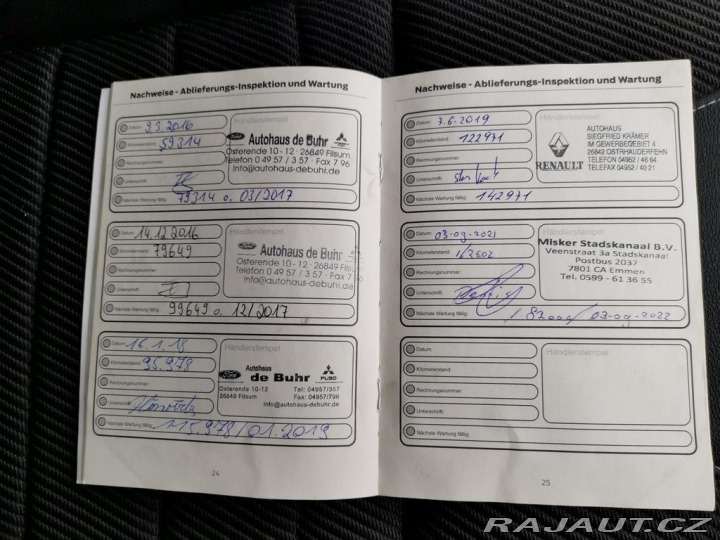 Nachweise - Ablieferungs-Inspektion und Wartung
Datum: 9.3.2016
Händlerstempel
Kilometerstand: 59314
Rechnungsnummer:
Unterschrift:
Nächste Wartung fällig: 79314 o. 03/2017
Ford Autohaus de Buhr
Osterende 10 - 12 · 26849 Filsum
Telefon 0 49 57 / 3 57 · Fax 7 96
info@autohaus-debuhr.de
Datum: 14.12.2016
Händlerstempel
Kilometerstand: 79649
Rechnungsnummer:
Unterschrift:
Nächste Wartung fällig: 99649 o 12/2017
Ford Autohaus de Buhr
Osterende 10 - 12 · 26849 Filsum
Telefon 0 49 57 / 3 57 · Fax 7 96
info@autohaus-debuhr.de
Datum: 16.1.18
Händlerstempel
Kilometerstand: 95.978
Rechnungsnummer:
Unterschrift:
Nächste Wartung fällig: 115.978/01.2019
Ford Autohaus
de Buhr
FUSO
Osterende 10-12
26849 Filsum
Tel: 04957/357
Fax: 04957/796
info@autohaus-debuhr.de
24
Nachweise - Ablieferungs-Inspektion und Wartung
Datum: 7.6.2019
Händlerstempel
Kilometerstand: 122971
Rechnungsnummer:
Unterschrift:
Nächste Wartung fällig: 142971
RENAULT
AUTOHAUS
SIEGFRIED KRÄMER
IM GEWERBEGEBIET 4
26842 OSTRHAUDERFEHN
TELEFON 04952 / 46 64
TELEFAX 04952 / 40 21
Datum: 03-09-2021
Kilometerstand:
Rechnungsnummer:
Unterschrift:
Nächste Wartung fällig: 03-09-2022
Misker Stadskanaal B.V.
Veenstraat 3a Stadskanaal
Postbus 2037
7801 CA Emmen
Tel. 0599 - 61 36 55
Datum:
Händlerstempel
Kilometerstand:
Rechnungsnummer:
Unterschrift:
Nächste Wartung fällig:
25
RAJAUT.CZ